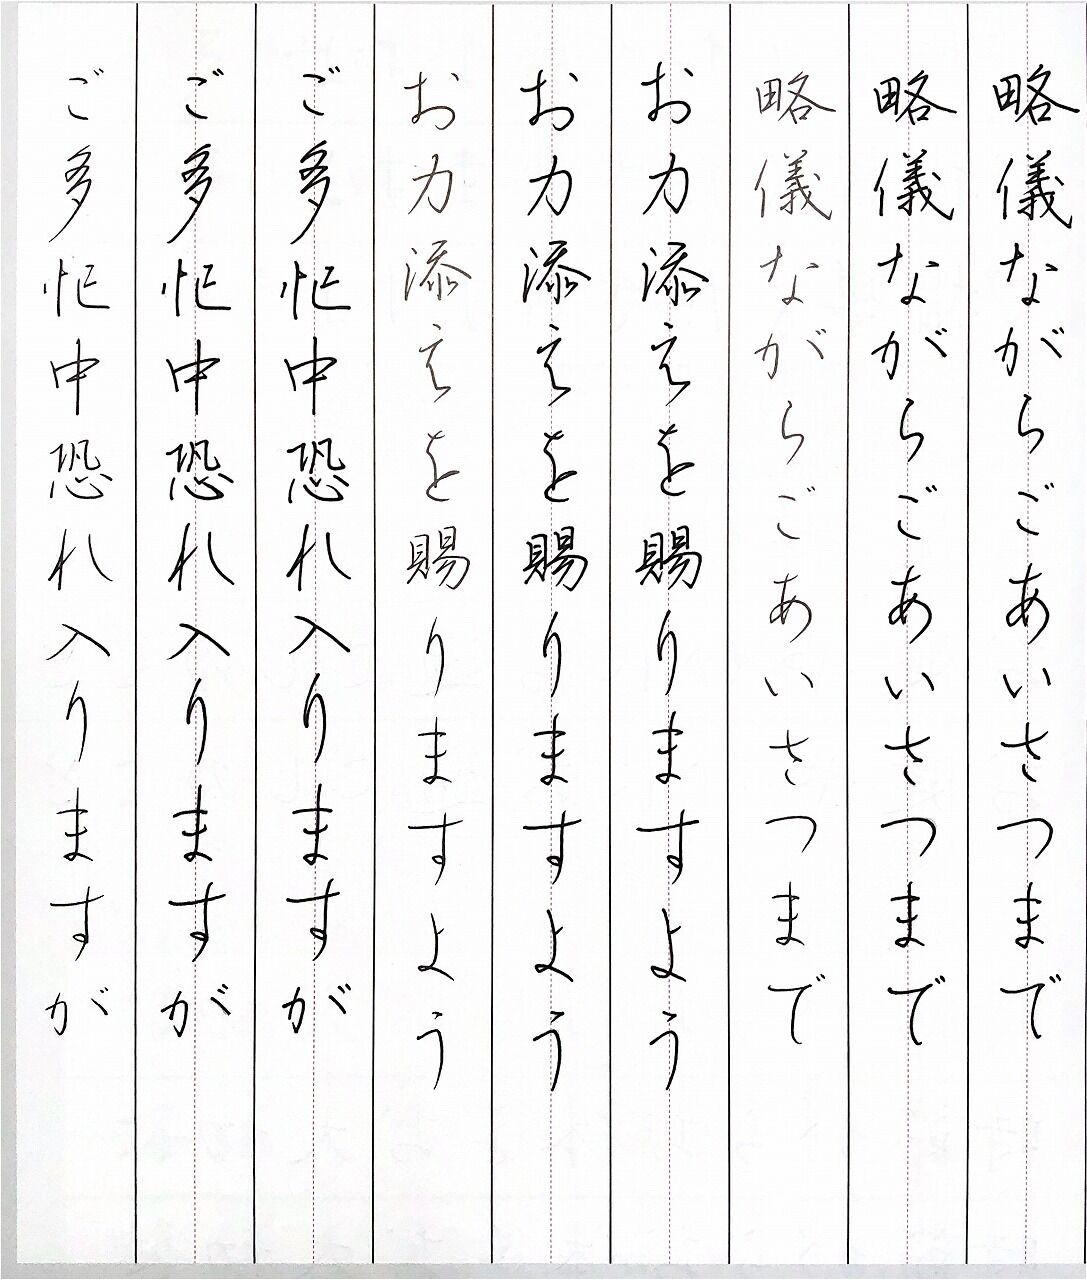 略儀ながらごあいさつまで
略儀ながらごあいさつまで
略儀ながらごあいさつまで
お力添えを賜りますよう
お力添えを賜りますよう
お力添えを賜りますよう
ご多忙中恐れ入りますが
ご多忙中恐れ入りますが
ご多忙中恐れ入りますが